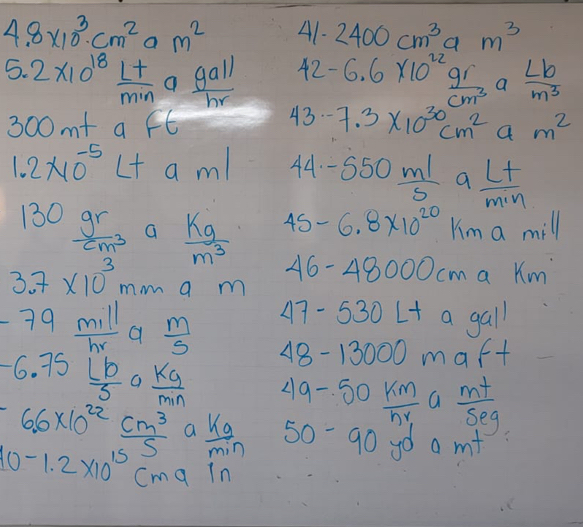 4.8x10³ cm² a m²
5.2x10¹⁸ Lt/min a gall/hr
300 mt a ft
1.2x10⁻⁵ Lt a ml
130 gr/cm³ a Kg/m³
3.7 x10³ mm a m
- 79 mill/hr a m/s
-6.75 Lb/s a Kg/min
- 6.6x10²² cm³/s a Kg/min
10-1.2x10¹⁵ cm a in
41.- 2400 cm³ a m³
42-6.6 x10²² gr/cm³ a Lb/m³
43.-7.3 x10³⁰ cm² a m²
44.-550 ml/s a Lt/min
45-6.8x10²⁰ Km a mill
46-48000cm a Km
47-530 Lt a gall
48-13000 m a ft
49-.50 Km/hr a mt/seg
50- 90 yd a mt